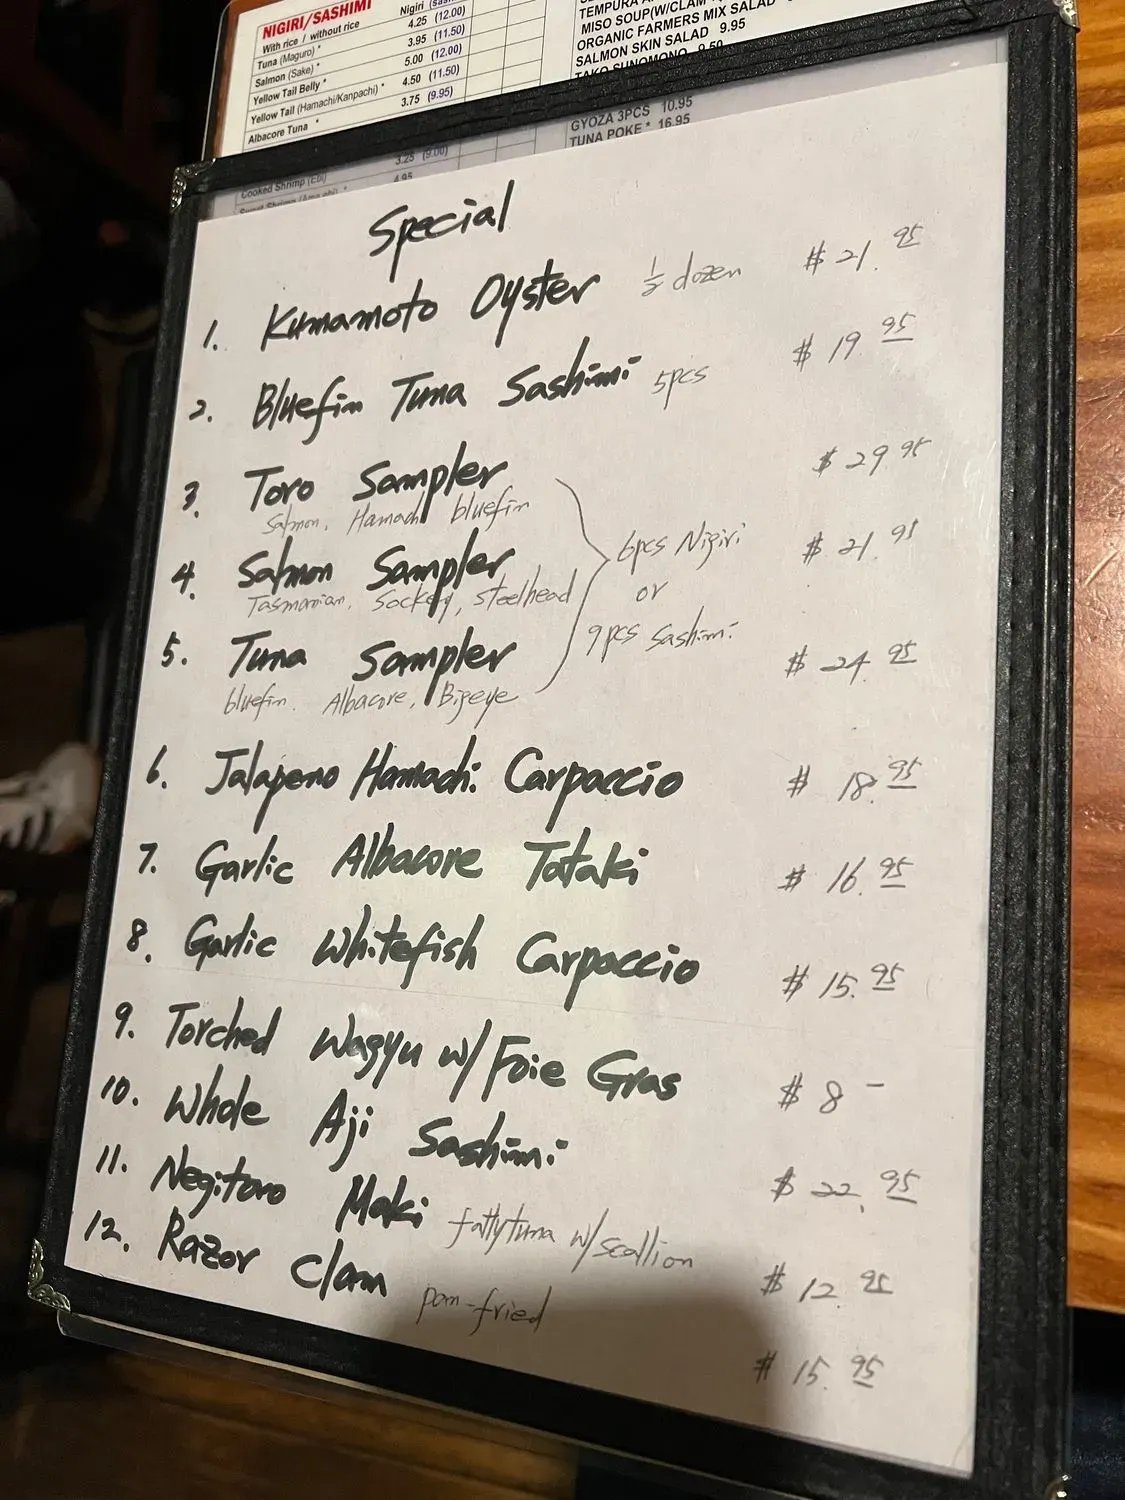 NIGIRI/SASHIMI
With rice / without rice Nigiri
Tuna (Maguro) * 4.25 (12.00)
Salmon (Sake) * 3.95 (11.50)
Yellow Tail Belly * 5.00 (12.00)
Yellow Tail (Hamachi/Kanpachi) * 4.50 (11.50)
Albacore Tuna * 3.75 (9.95)
Cooked Shrimp (Ebi) 3.25 (9.00)
4.95
MISO SOUP(W/CLAM
ORGANIC FARMERS MIX SALAD
SALMON SKIN SALAD 9.95
TAKO SUNOMONO 9.50
GYOZA 3PCS 10.95
TUNA POKE * 16.95
Special
1. Kumamoto Oyster 1/2 dozen $21.95
2. Bluefin Tuna Sashimi 5pcs $19.95
3. Toro Sampler $29.95
Salmon, Hamachi bluefin
4. Salmon Sampler $21.95
Tasmanian, Sockey, steelhead
5. Tuna Sampler $24.95
bluefin. Albacore, Bigeye
6pcs Nigiri
or
9pcs sashimi
6. Jalapeno Hamachi Carpaccio $18.95
7. Garlic Albacore Tataki $16.95
8. Garlic Whitefish Carpaccio $15.95
9. Torched Wagyu w/ Foie Gras $8-
10. Whole Aji Sashimi $22.95
11. Negitoro Maki fattytuna w/scallion $12.95
12. Razor Clam pan-fried $15.95